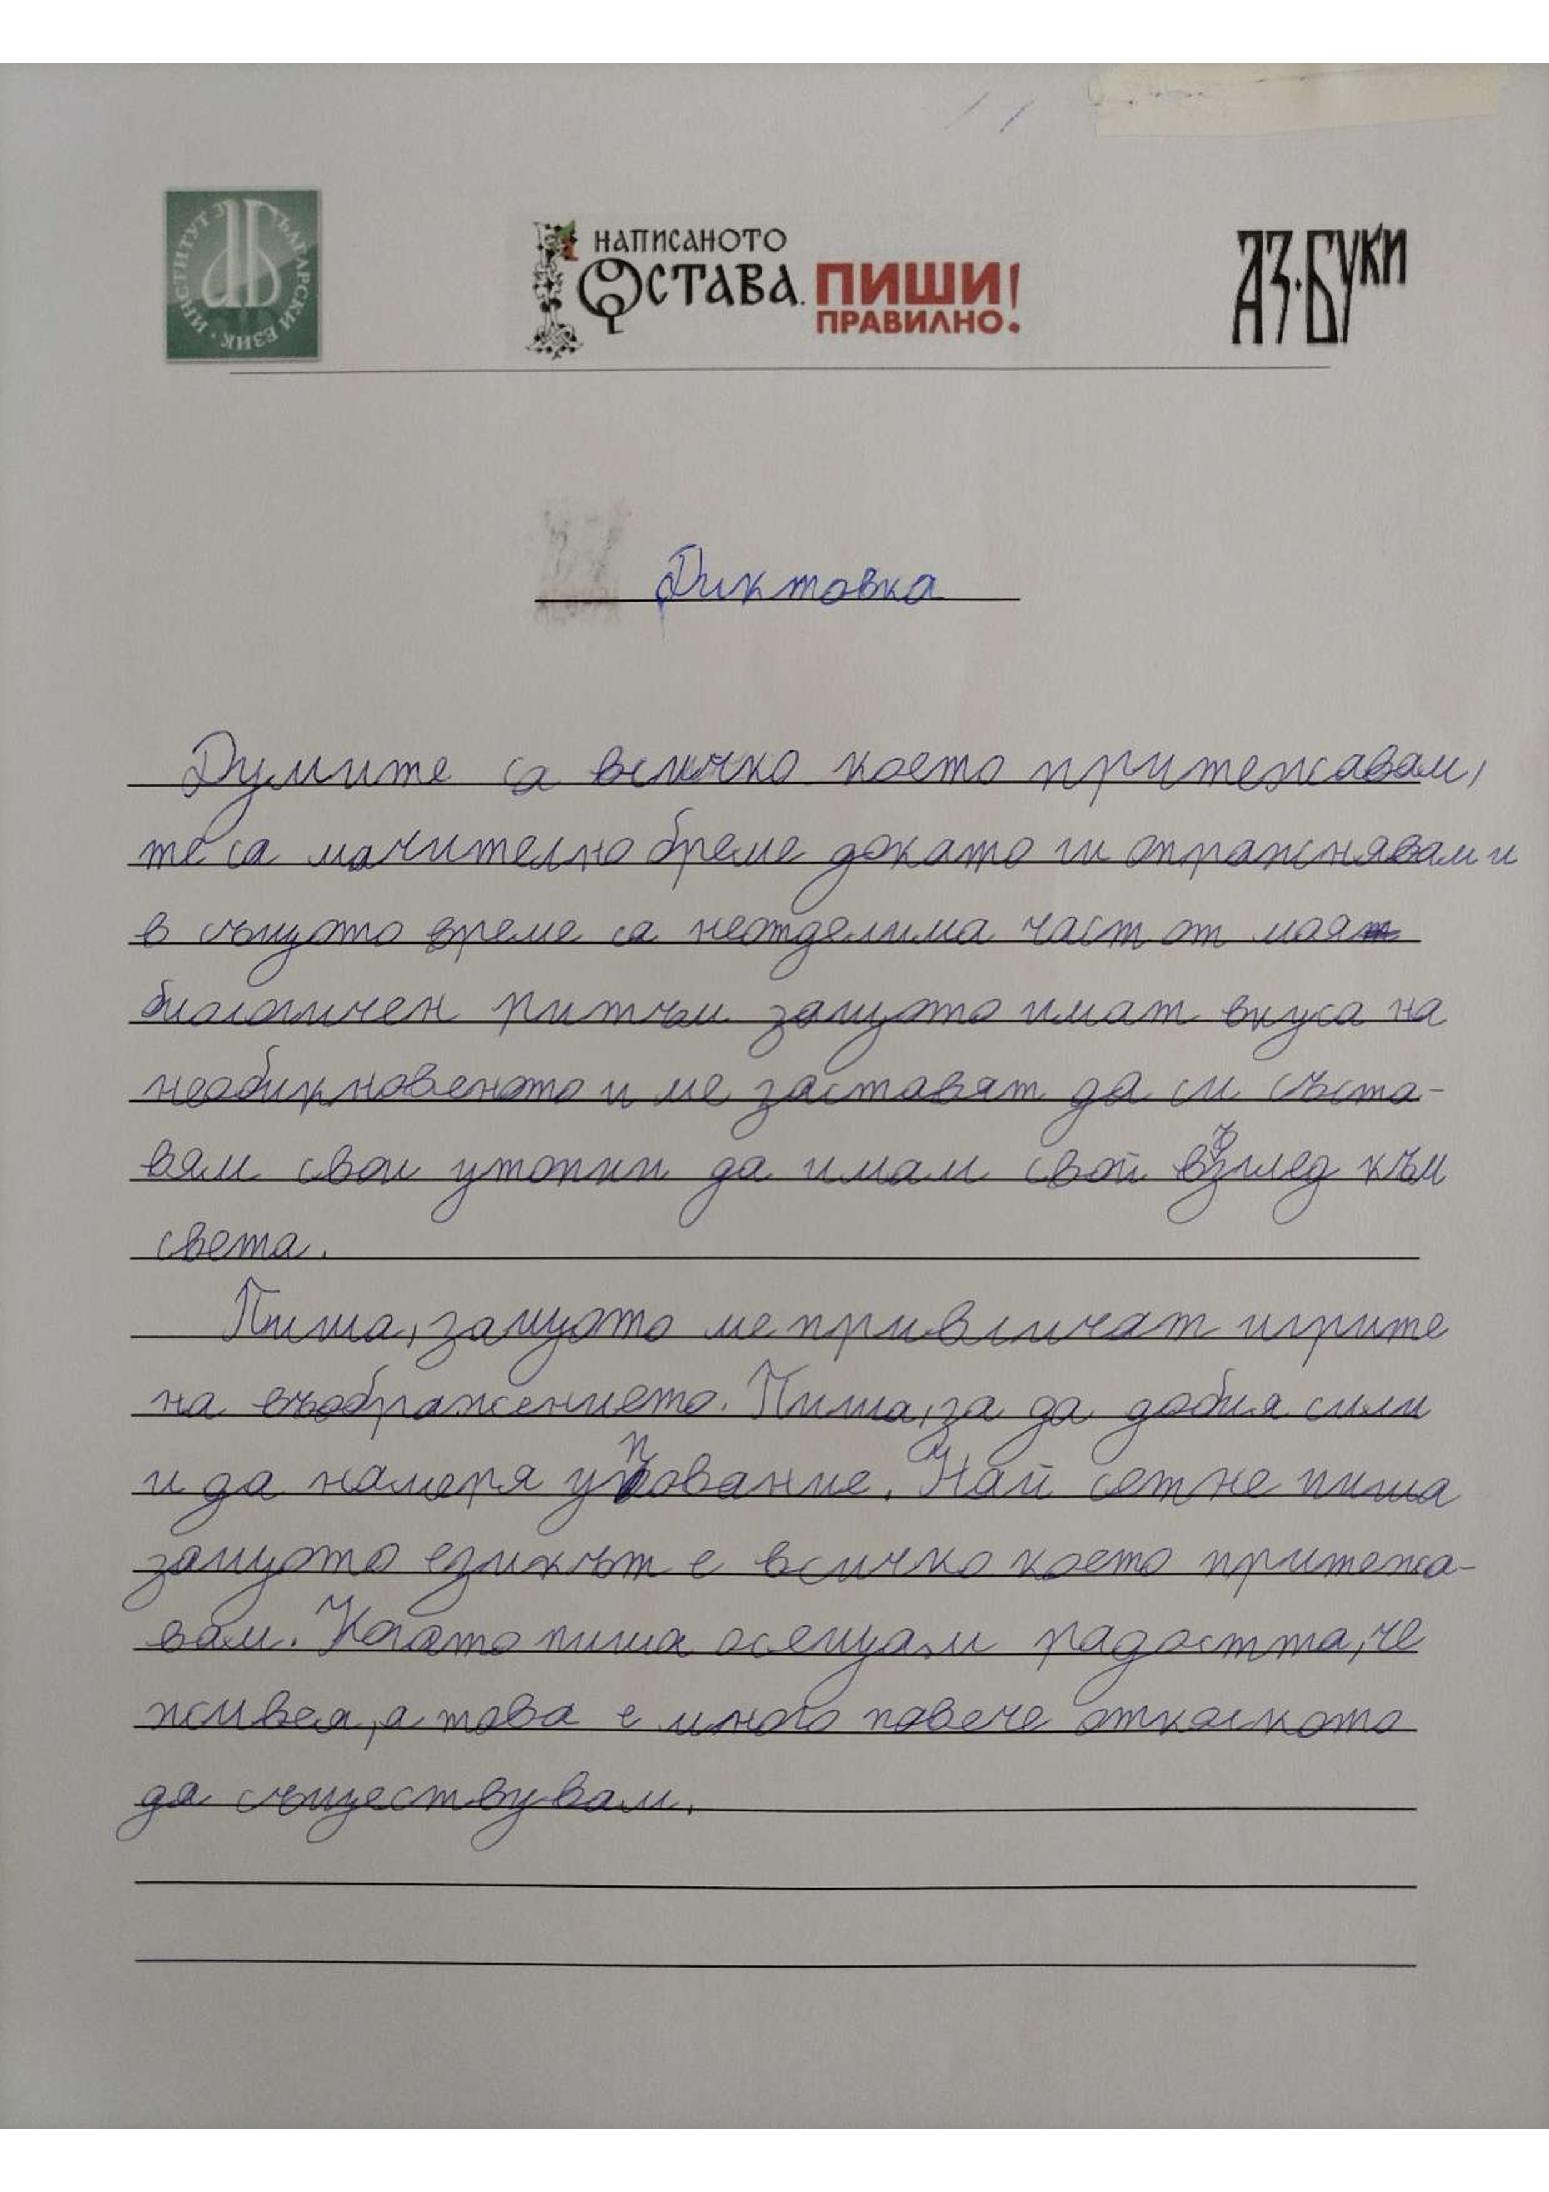 ИНСТИТУТ ЗА БЪЛГАРСКИ ЕЗИК
НАПИСАНОТО
ОСТАВА. ПИШИ
ПРАВИЛНО!
АЗ·БУКИ
Диктовка
Думите са всичко което притежавам,
те са мачително бреме докато ги отражнявам и
в същото време са неотделима част от моя
биологичен ритъм защото имат вкуса на
необикновеното и ме заставят да си съста-
вям свои утопии да имам свой възглед към
света.
Пиша, защото ме привличат игрите
на въображението. Пиша, за да добия сили
и да намеря упование. Най сетне пиша
защото езикът е всичко което притежа-
вам. Когато пиша осещам радостта, че
живея, а това е много повече отколкото
да съществувам.